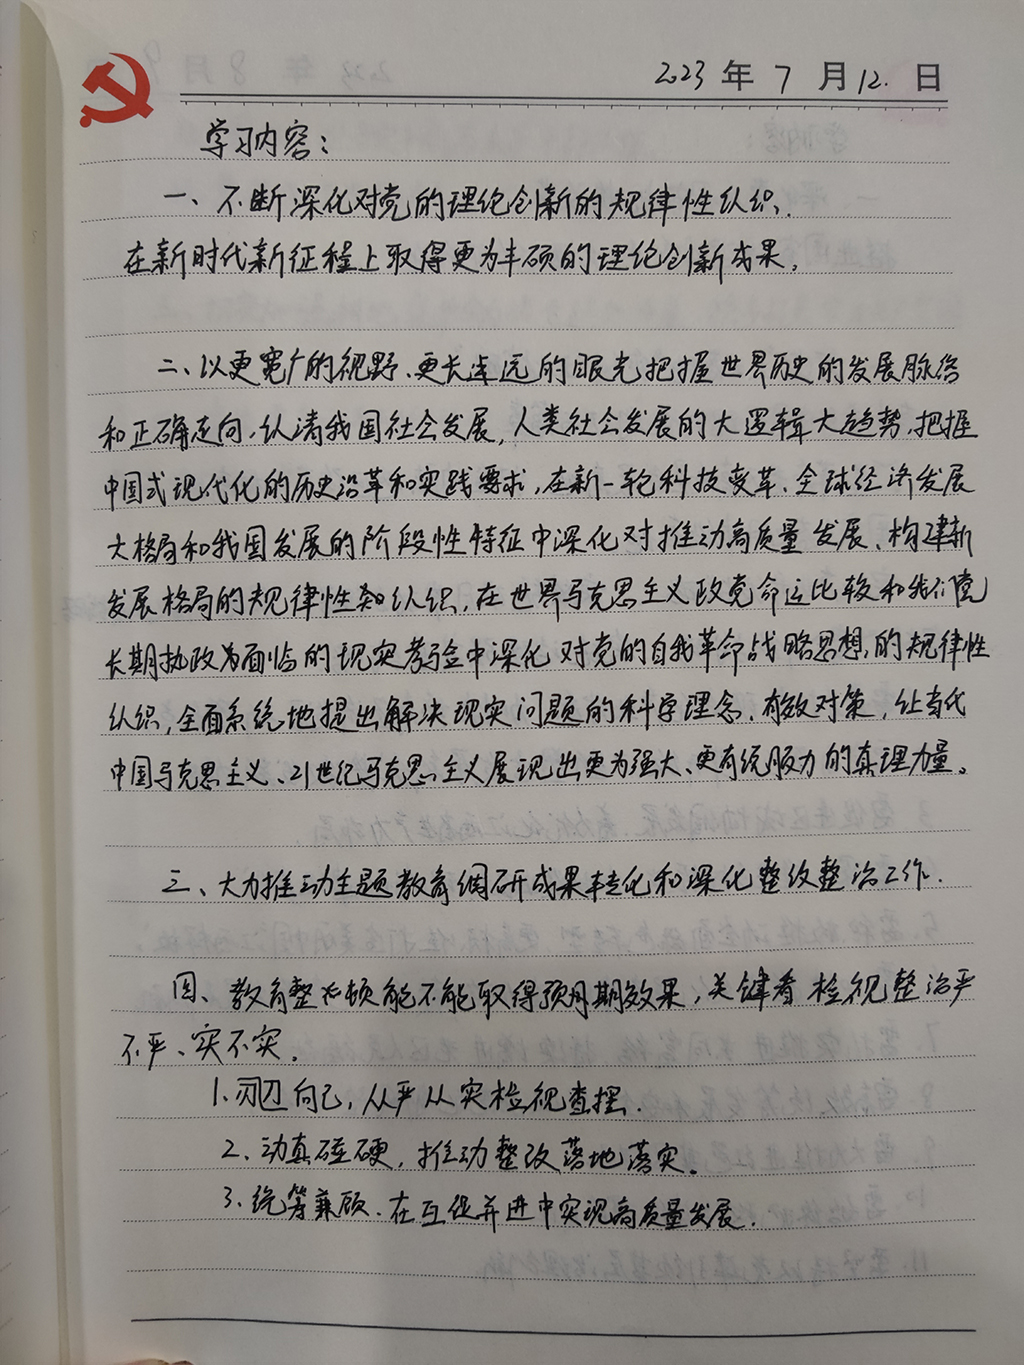 2023年7月12.日
学习内容：
一、不断深化对党的理论创新的规律性认识.
在新时代新征程上取得更为丰硕的理论创新成果。
二、以更宽广的视野、更长远的眼光把握世界历史的发展脉络
和正确走向，认清我国社会发展，人类社会发展的大逻辑大趋势，把握
中国式现代化的历史沿革和实践要求，在新一轮科技变革、全球经济发展
大格局和我国发展的阶段性特征中深化对推动高质量发展、构建新
发展格局的规律性认识，在世界马克思主义政党命运比较和我们党
长期执政为面临的现实考验中深化对党的自我革命战略思想的规律性
认识，全面系统地提出解决现实问题的科学理念、有效对策，让当代
中国马克思主义、21世纪马克思主义展现出更为强大、更有说服力的真理力量。
三、大力推动主题教育调研成果转化和深化整改整治工作.
四、教育整顿能不能取得预期效果，关键看检视整治严
不严、实不实。
1.刃向自己，从严从实检视查摆.
2、动真碰硬，推动整改落地落实。
3、统筹兼顾、在互促并进中实现高质量发展.